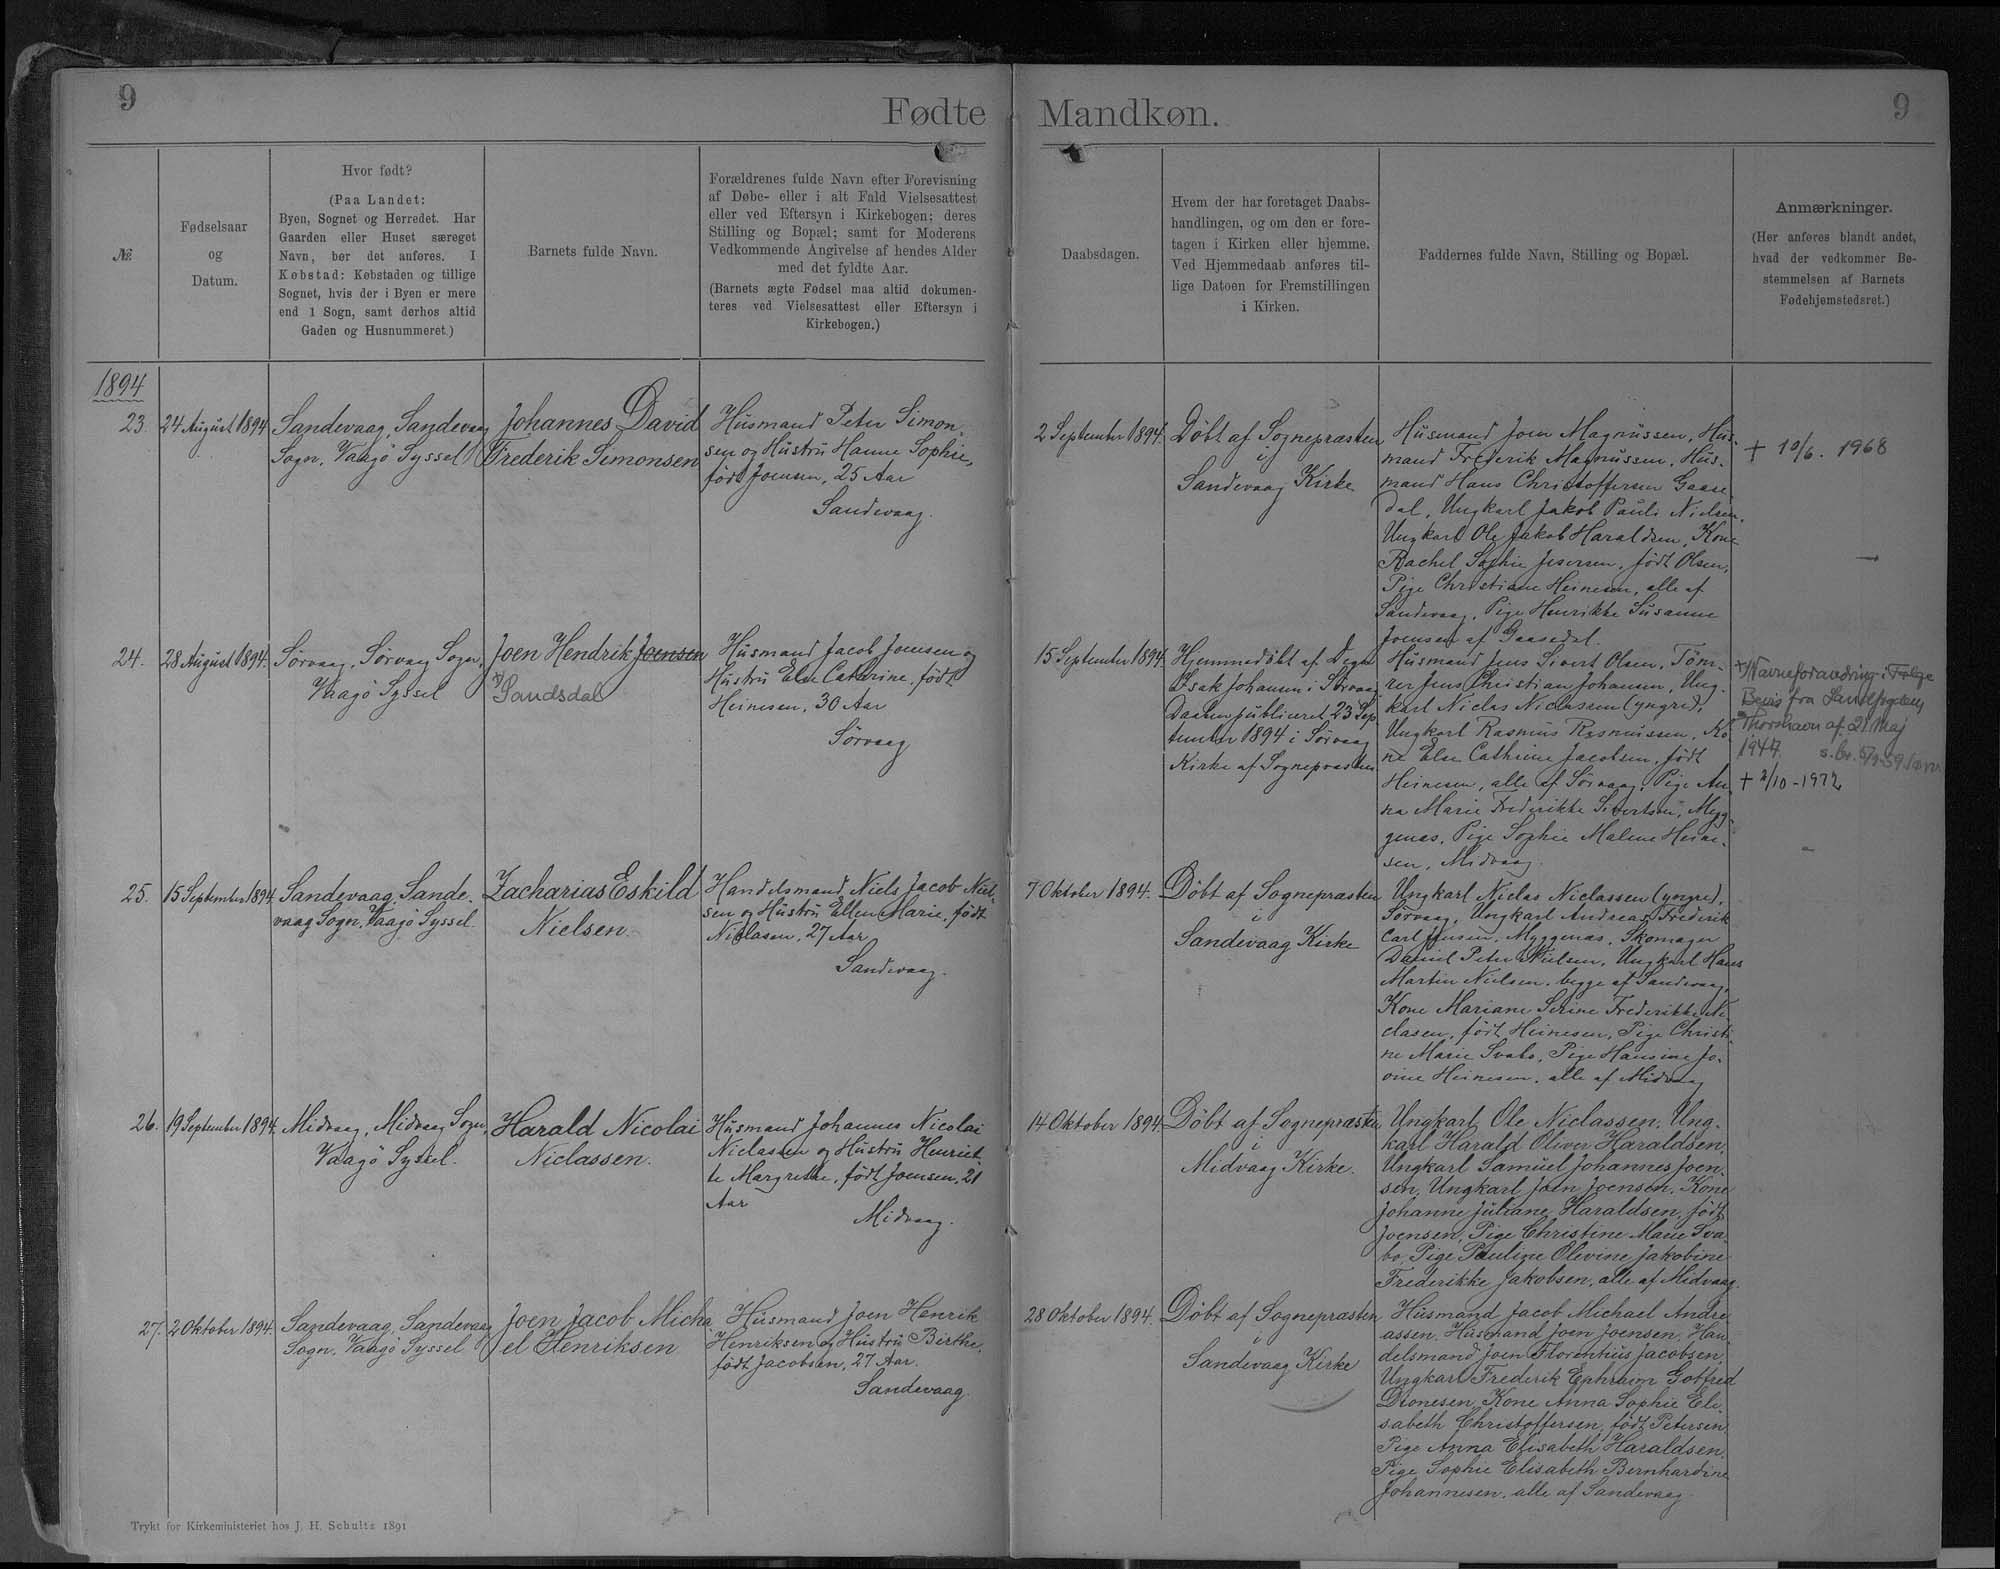 9
Fødte
№
Fødselsaar
og
Datum.
Hvor født?
(Paa Landet:
Byen, Sognet og Herredet. Har
Gaarden eller Huset særeget
Navn, bør det anføres. I
Købstad: Købstaden og tillige
Sognet, hvis der i Byen er mere
end 1 Sogn, samt derhos altid
Gaden og Husnummeret.)
Barnets fulde Navn.
Forældrenes fulde Navn efter Forevisning
af Døbe- eller i alt Fald Vielsesattest
eller ved Eftersyn i Kirkebogen; deres
Stilling og Bopæl; samt for Moderens
Vedkommende Angivelse af hendes Alder
med det fyldte Aar.
(Barnets ægte Fødsel maa altid dokumen-
teres ved Vielsesattest eller Eftersyn i
Kirkebogen.)
1894
23.
24 August 1894
Sandevaag, Sandevaag
Sogn, Vaagö Syssel
Johannes David
Frederik Simonsen
Husmand Peter Simon-
sen og Hustru Hanne Sophie,
født Joensen, 25 Aar
Sandevaag.
24.
28 August 1894.
Sörvaag, Sörvaag Sogn,
Vaagö Syssel
Joen Hendrik Joensen
x) Sandsdal
Husmand Jacob Joensen og
Hustru Else Cathrine, født
Heinesen, 30 Aar
Sörvaag
25.
15 September 1894
Sandevaag, Sande-
vaag Sogn, Vaagö Syssel.
Zacharias Eskild
Nielsen.
Handelsmand Niels Jacob Niel-
sen og Hustru Ellen Marie, født
Niclasen, 27 Aar
Sandevaag.
26.
19 September 1894.
Midvaag, Midvaag Sogn,
Vaagö Syssel.
Harald Nicolai
Niclassen.
Husmand Johannes Nicolai
Niclassen og Hustru Henriet-
te Margrethe, født Joensen, 21
Aar
Midvaag.
27.
2 Oktober 1894.
Sandevaag, Sandevaag
Sogn, Vaagö Syssel
Joen Jacob Micha-
el Henriksen
Husmand Joen Henrik
Henriksen og Hustru Birthe,
født Jacobsen, 27 Aar.
Sandevaag
Trykt for Kirkeministeriet hos J. H. Schultz 1891
Mandkøn.
9
Daabsdagen.
Hvem der har foretaget Daabs-
handlingen, og om den er fore-
tagen i Kirken eller hjemme.
Ved Hjemmedaab anføres til-
lige Datoen for Fremstillingen
i Kirken.
Faddernes fulde Navn, Stilling og Bopæl.
Anmærkninger.
(Her anføres blandt andet,
hvad der vedkommer Be-
stemmelsen af Barnets
Fødehjemstedsret.)
2 September 1894.
Döbt af Sognepræsten
i
Sandevaag Kirke
Husmand Joen Magnussen, Hus-
mand Frederik Magnussen, Hus-
mand Hans Christoffersen Gaase-
dal, Ungkarl Jakob Pauli Nielsen,
Ungkarl Ole Jakob Haraldsen, Kone
Rachel Sophie, født Olsen,
Pige Christiane Heinesen, alle af
Sandevaag, Pige Henrikke Susanne
Joensen af Gaasedal.
+ 10/6. 1968
15 September 1894.
Hjemmedöbt af Degn
Isak Johansen i Sörvaag
Daaben publiceret 23 Sep-
tember 1894 i Sörvaag
Kirke af Sognepræsten
Husmand Jens Sivert Olsen, Töm-
rer Jens Christian Johansen, Ung-
karl Niclas Niclassen (yngre),
Ungkarl Rasmus Rasmussen, Ko-
ne Else Cathrine Jacobsen, født
Heinesen, alle af Sörvaag, Pige An-
na Marie Frederikke Sivertsen, Myg-
genæs, Pige Sophie Malene Heine-
sen, Midvaag.
x) Navneforandring i Følge
Bevis fra Landfogden
Thorshavn af 21 Maj
1947
+ 2/10 - 1972
7 Oktober 1894.
Döbt af Sognepræsten
i
Sandevaag Kirke
Ungkarl Niclas Niclassen (yngre),
Sörvaag, Ungkarl Andreas Frederik
Carl Jensen, Myggenæs, Skomager
Daniel Peter Nielsen, Ungkarl Hans
Martin Nielsen, begge af Sandevaag,
Kone Mariane Serine Frederikke Ni-
clasen, født Heinesen, Pige Christi-
ne Marie Svabo, Pige Hansine Jo-
vine Heinesen, alle af Midvaag
14 Oktober 1894.
Döbt af Sognepræsten
i
Midvaag Kirke.
Ungkarl Ole Niclassen, Ung-
karl Harald Oliver Haraldsen,
Ungkarl Samuel Johannes Joen-
sen, Ungkarl Joen Joensen, Kone
Johanne Juliane Haraldsen, født
Joensen, Pige Christine Marie Sva-
bo, Pige Pauline Olevine Jakobine
Frederikke Jakobsen, alle af Midvaag.
28 Oktober 1894.
Döbt af Sognepræsten
i
Sandevaag Kirke
Husmand Jacob Michael Andre-
assen, Husmand Joen Joensen, Han-
delsmand Joen Florentius Jacobsen,
Ungkarl Frederik Ephraim Gotfred
Dionesen, Kone Anna Sophie Eli-
sabeth Christoffersen, født Petersen,
Pige Anna Elisabeth Haraldsen,
Pige Sophie Elisabeth Bernhardine
Johannesen, alle af Sandevaag